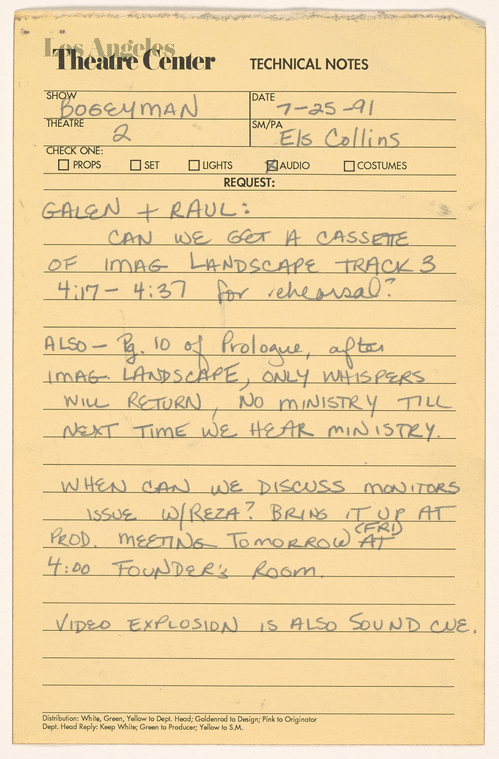 Los Angeles
Theatre Center TECHNICAL NOTES
SHOW BOGEYMAN DATE 7-25-91
THEATRE 2 SM/PA Els Collins
CHECK ONE:
PROPS SET LIGHTS AUDIO COSTUMES
REQUEST:
GALEN + RAUL:
CAN WE GET A CASSETTE
OF IMAG LANDSCAPE TRACK 3
4:17 - 4:37 for rehearsal?
ALSO - Pg. 10 of Prologue, after
IMAG. LANDSCAPE, ONLY WHISPERS
WILL RETURN, NO MINISTRY TILL
NEXT TIME WE HEAR MINISTRY.
WHEN CAN WE DISCUSS MONITORS
ISSUE W/REZA? BRING IT UP AT
PROD. MEETING TOMORROW (FRI) AT
4:00 FOUNDER'S ROOM.
VIDEO EXPLOSION IS ALSO SOUND CUE.
Distribution: White, Green, Yellow to Dept. Head; Goldenrod to Design; Pink to Originator
Dept. Head Reply: Keep White; Green to Producer; Yellow to S.M.